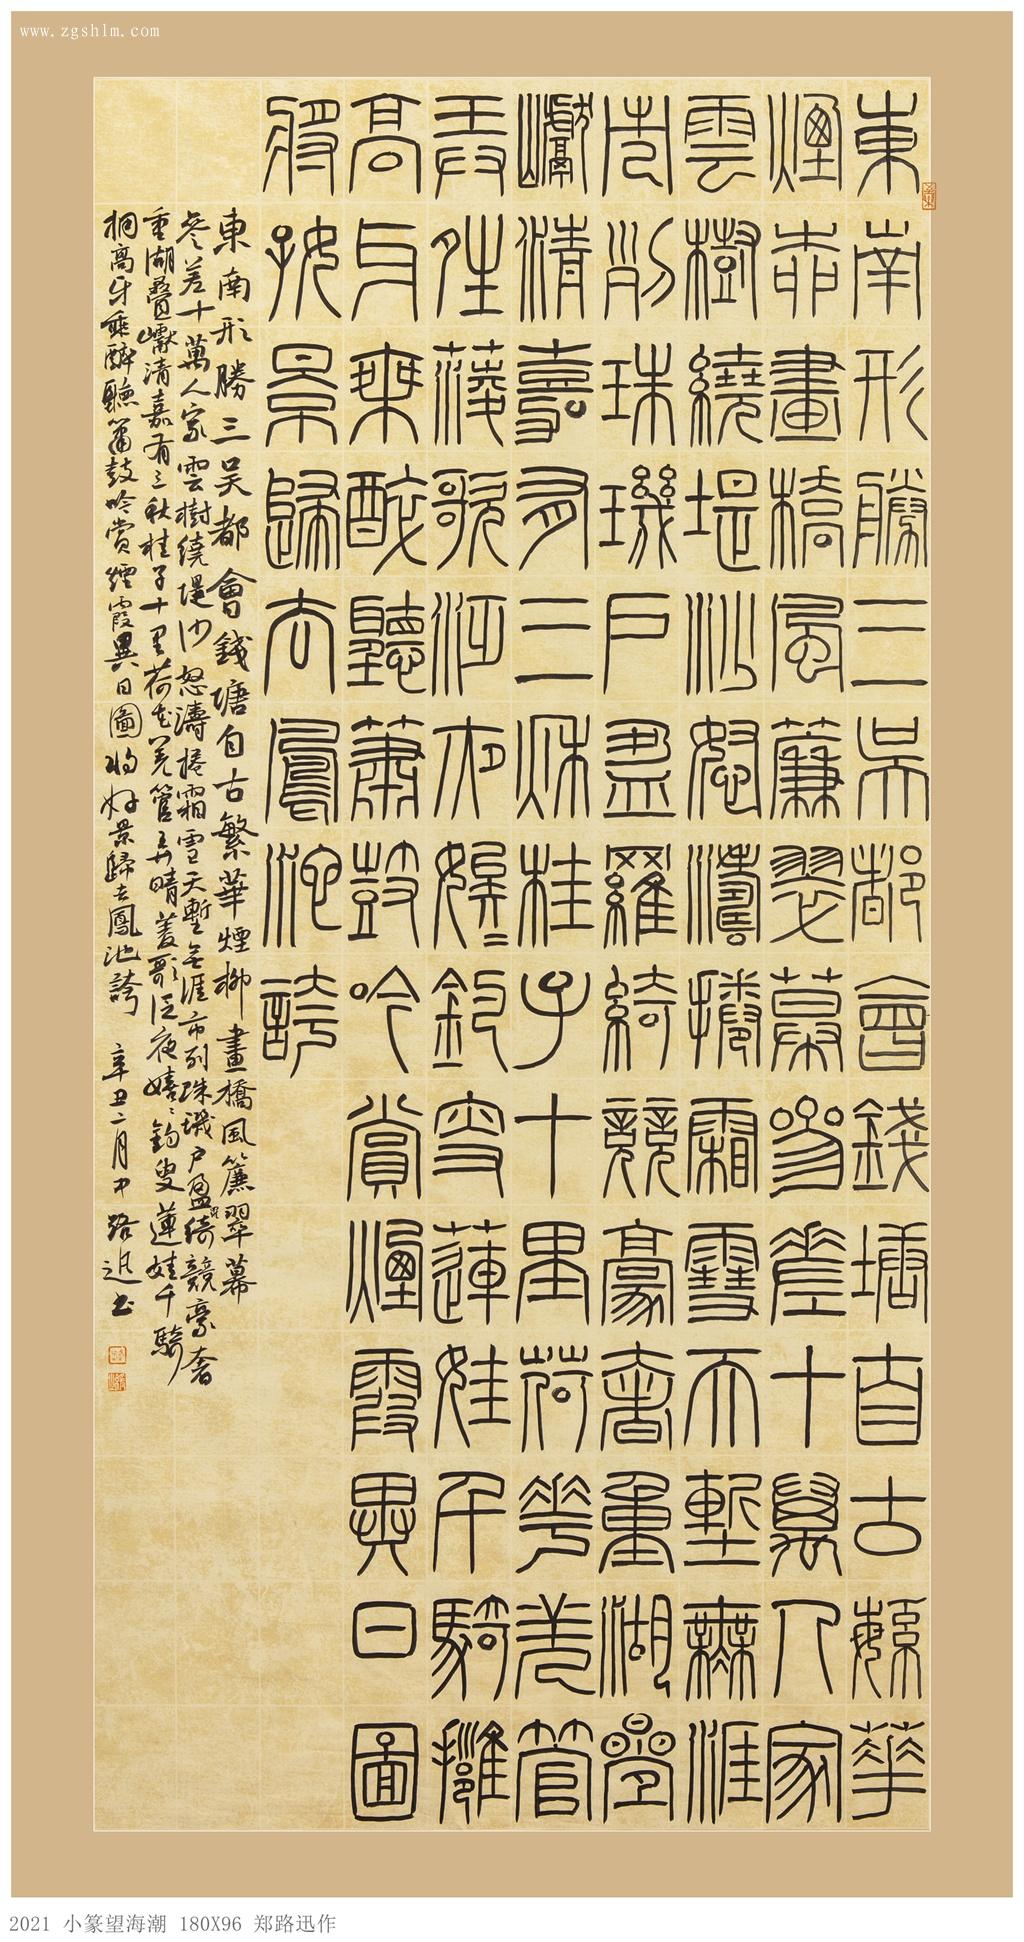 www.zgshlm.com
東南形勝三吳都會錢塘自古繁華
煙柳畫橋風簾翠幕參差十萬人家
雲樹繞堤沙怒濤捲霜雪天塹無涯
市列珠璣戶盈羅綺競豪奢重湖疊
巘清嘉有三秋桂子十里荷花羌管
弄晴菱歌泛夜嬉〻釣叟蓮娃千騎擁
高牙乘醉聽簫鼓吟賞煙霞異日圖
將好景歸去鳳池誇
東南形勝三吳都會錢塘自古繁華煙柳畫橋風簾翠幕
參差十萬人家雲樹繞堤沙怒濤捲霜雪天塹無涯市列珠璣戶盈綺競豪奢
重湖疊巘清嘉有三秋桂子十里荷花羌管弄晴菱歌泛夜嬉〻釣叟蓮娃千騎
擁高牙乘醉聽簫鼓吟賞煙霞異日圖將好景歸去鳳池誇 辛丑二月中路迅書
2021 小篆望海潮 180X96 郑路迅作